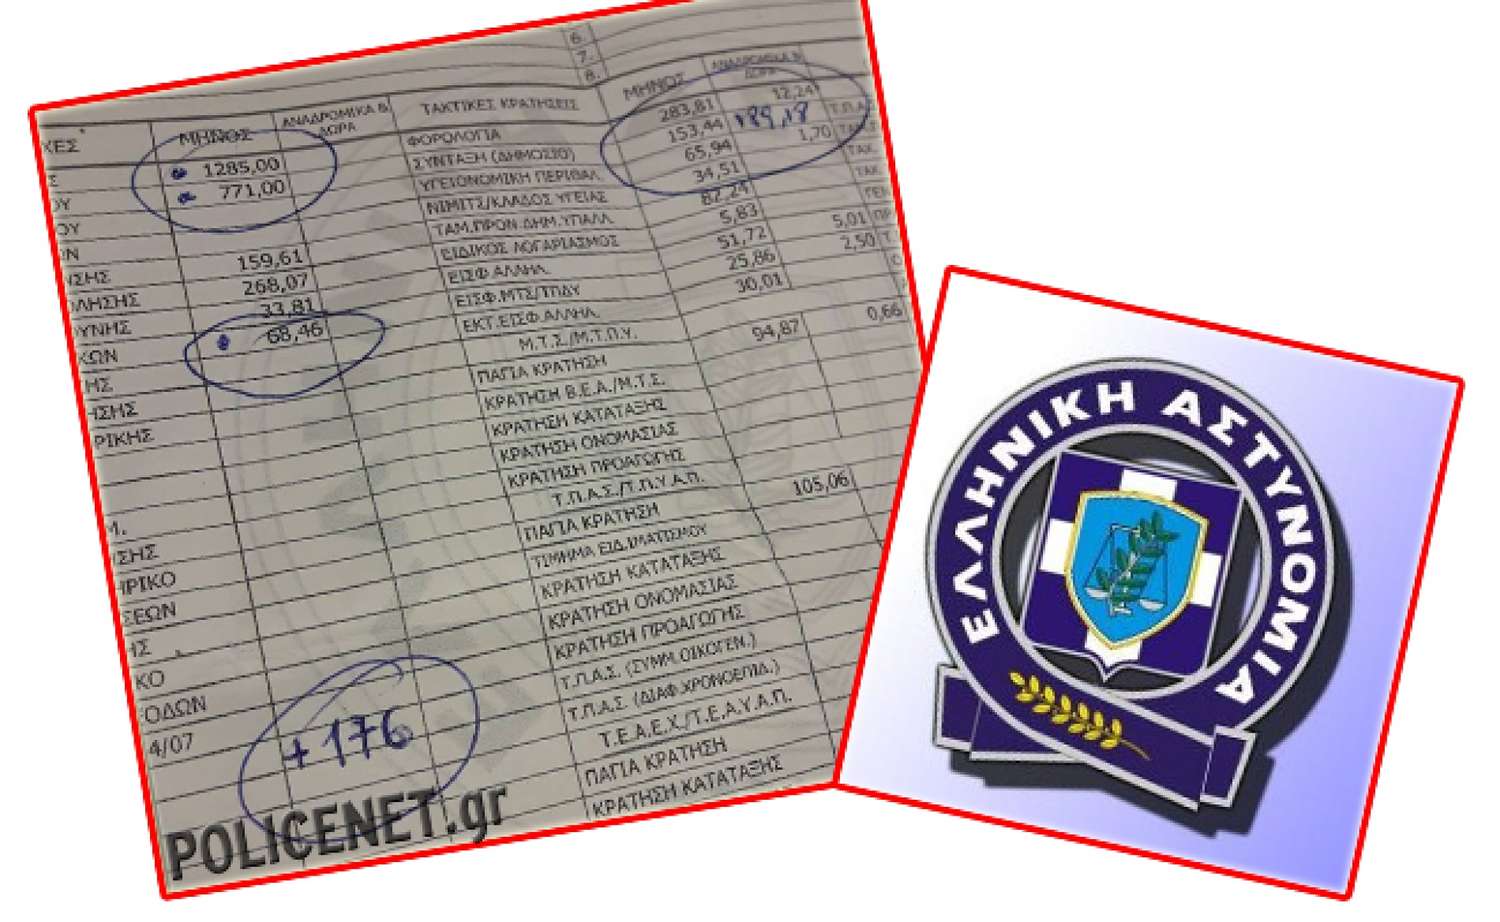 6.
7.
8.
ΚΕΣ ΜΗΝΟΣ ΑΝΑΔΡΟΜΙΚΑ & ΔΩΡΑ ΤΑΚΤΙΚΕΣ ΚΡΑΤΗΣΕΙΣ ΜΗΝΟΣ ΑΝΑΔΡΟΜΙΚΑ & ΔΩΡΑ
Σ 1285,00 ΦΟΡΟΛΟΓΙΑ 283,81 12,24 Τ.Π.Α.Σ
ΟΥ 771,00 ΣΥΝΤΑΞΗ (ΔΗΜΟΣΙΟ) 153,44 189,18
ΟΥ ΥΓΕΙΟΝΟΜΙΚΗ ΠΕΡΙΘΑΛ. 65,94 1,70
ΩΝ ΝΙΜΙΤΣ/ΚΛΑΔΟΣ ΥΓΕΙΑΣ 34,51 ΤΑΚ
ΥΣΗΣ 159,61 ΤΑΜ.ΠΡΟΝ.ΔΗΜ.ΥΠΑΛΛ. 82,24 ΤΑΚ.
ΟΛΗΣΗΣ 268,07 ΕΙΔΙΚΟΣ ΛΟΓΑΡΙΑΣΜΟΣ 5,83
ΥΝΗΣ 33,81 ΕΙΣΦ.ΑΛΛΗΛ. 51,72 5,01
ΚΩΝ 68,46 ΕΙΣΦ.ΜΤΣ/ΤΠΔΥ 25,86 2,50
ΗΣ ΕΚΤ.ΕΙΣΦ.ΑΛΛΗΛ. 30,01
ΗΣΗΣ Μ.Τ.Σ./Μ.Τ.Π.Υ.
ΡΙΚΗΣ ΠΑΓΙΑ ΚΡΑΤΗΣΗ 94,87 0,66
ΚΡΑΤΗΣΗ Β.Ε.Α./Μ.Τ.Σ.
ΚΡΑΤΗΣΗ ΚΑΤΑΤΑΞΗΣ
ΚΡΑΤΗΣΗ ΟΝΟΜΑΣΙΑΣ
Μ. ΚΡΑΤΗΣΗ ΠΡΟΑΓΩΓΗΣ
ΣΗΣ Τ.Π.Α.Σ./Τ.Π.Υ.Α.Π.
ΗΡΙΚΟ ΠΑΓΙΑ ΚΡΑΤΗΣΗ 105,06
ΣΕΩΝ ΤΙΜΗΜΑ ΕΙΔ.ΙΜΑΤΙΣΜΟΥ
ΗΣ . ΚΡΑΤΗΣΗ ΚΑΤΑΤΑΞΗΣ
ΚΟ ΚΡΑΤΗΣΗ ΟΝΟΜΑΣΙΑΣ
ΟΔΩΝ ΚΡΑΤΗΣΗ ΠΡΟΑΓΩΓΗΣ
4/07 Τ.Π.Α.Σ. (ΣΥΜΜ.ΟΙΚΟΓΕΝ.)
+176 Τ.Π.Α.Σ. (ΔΙΑΦ.ΧΡΟΝΟΕΠΙΔ.)
Τ.Ε.Α.Ε.Χ/Τ.Ε.Α.Υ.Α.Π.
ΠΑΓΙΑ ΚΡΑΤΗΣΗ
ΚΡΑΤΗΣΗ ΚΑΤΑΤΑΞΗΣ
POLICENET.gr
ΕΛΛΗΝΙΚΗ ΑΣΤΥΝΟΜΙΑ